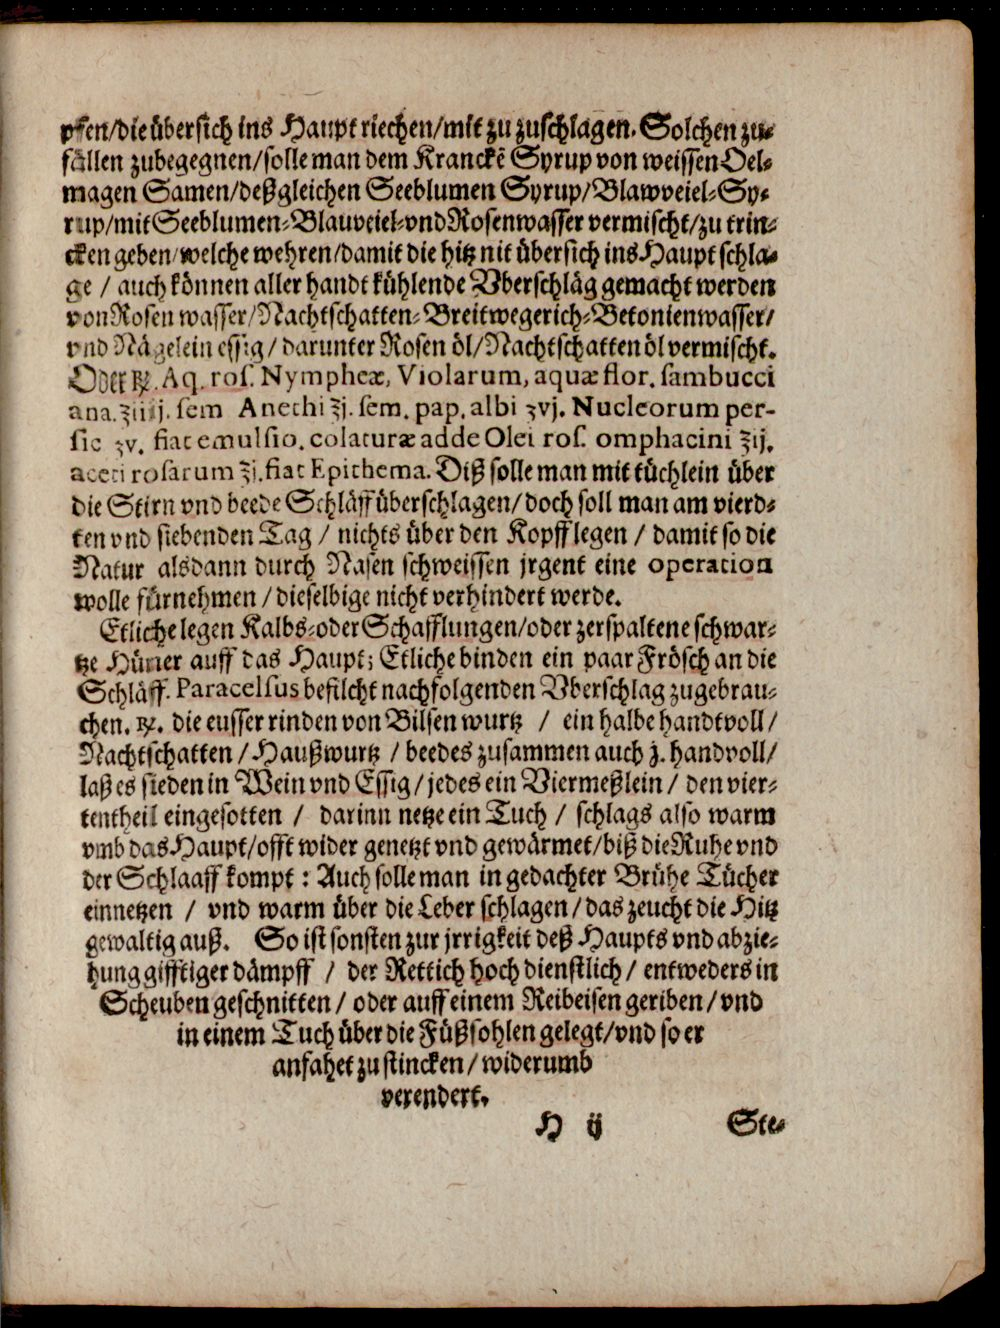 pfen/die übersich ins Haupt riechen/mit zu zuschlagen. Solchen zu⸗
fällen zubegegnen/solle man dem Kranckẽ Syrup von weissen Oel⸗
magen Samen/deßgleichen Seeblumen Syrup/Blawveiel⸗Sy⸗
rup/mit Seeblumen⸗Blauveiel⸗vnd Rosenwasser vermischt/zu trin⸗
cken geben/welche wehren/damit die hitz nit übersich ins Haupt schla⸗
ge / auch können aller handt kühlende Vberschläg gemacht werden
von Rosen wasser/Nachtschatten⸗Breitwegerich⸗Betonienwasser/
vnd Nägelein essig/ darunter Rosen öl/Nachtschatten öl vermischt.
Oder ℞. Aq. ros. Nympheæ, Violarum, aquæ flor. sambucci
ana. ℥iiij. sem Anethi ℥j. sem. pap. albi ʒvj. Nucleorum per-
sic ʒv. fiat emulsio. colaturæ adde Olei ros. omphacini ℥ij.
aceti rosarum ℥j. fiat Epithema. Diß solle man mit tüchlein über
die Stirn vnd beede Schläff überschlagen/ doch soll man am vierd⸗
ten vnd siebenden Tag / nichts über den Kopff legen / damit so die
Natur alsdann durch Nasen schweissen jrgent eine operation
wolle fürnehmen / dieselbige nicht verhindert werde.
Etliche legen Kalbs⸗oder Schafflungen/oder zerspaltene schwar⸗
tze Hüner auff das Haupt; Etliche binden ein paar Frösch an die
Schläff. Paracelsus befilcht nachfolgenden Vberschlag zugebrau⸗
chen. ℞. die eusser rinden von Bilsen wurtz / ein halbe handtvoll /
Nachtschatten / Haußwurtz / beedes zusammen auch j. handvoll/
laß es sieden in Wein vnd Essig / jedes ein Viermeßlein / den vier⸗
tentheil eingesotten / darinn netze ein Tuch / schlags also warm
vmb das Haupt/offt wider genetzt vnd gewärmet/biß die Ruhe vnd
der Schlaaff kompt : Auch solle man in gedachter Brühe Tücher
einnetzen / vnd warm über die Leber schlagen / das zeucht die Hitz
gewaltig auß. So ist sonsten zur jrrigkeit deß Haupts vnd abzie⸗
hung gifftiger dämpff / der Rettich hoch dienstlich / entweders in
Scheuben geschnitten / oder auff einem Reibeisen geriben / vnd
in einem Tuch über die Füßsohlen gelegt/vnd so er
anfahet zu stincken / widerumb
verendert.
H ij Ste⸗